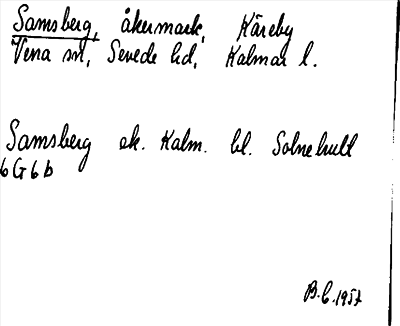 Samsberg, åkermark, Käreby
Vena sn, Sevede hd, Kalmar l.
Samsberg ek. Kalm. bl. Solnehult
6G6b
B.C. 1957